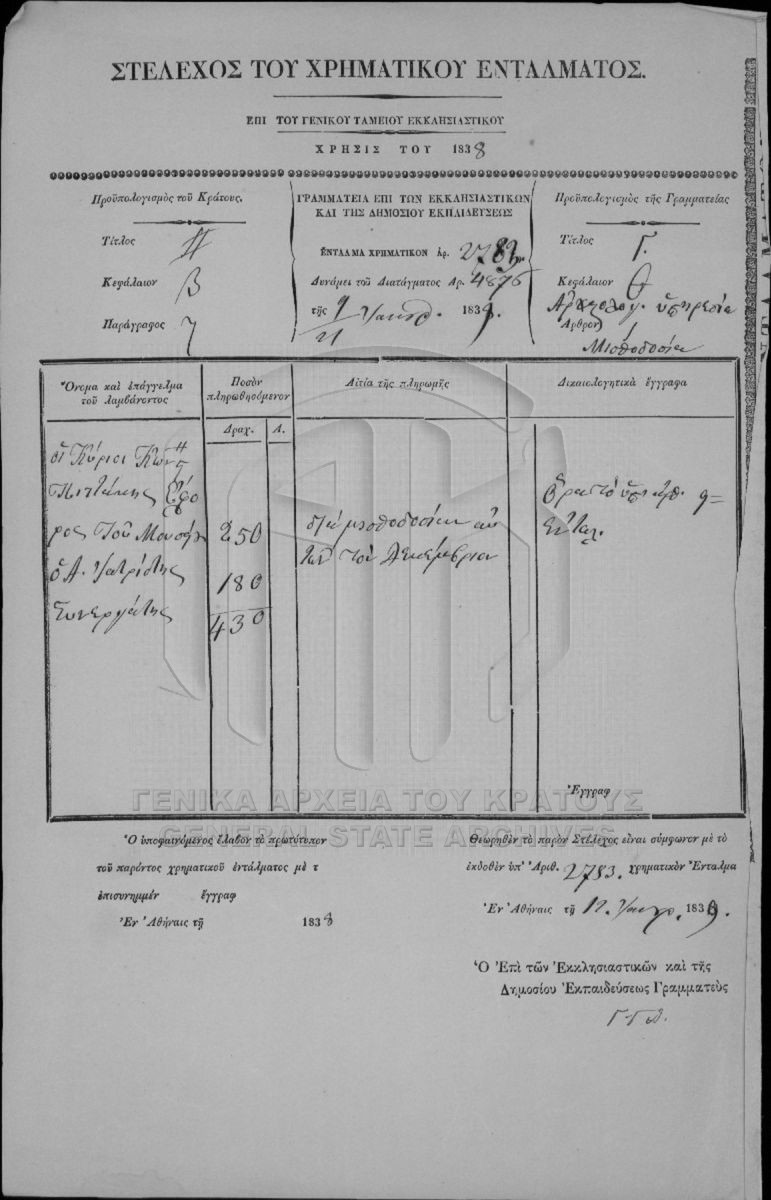 ΣΤΕΛΕΧΟΣ ΤΟΥ ΧΡΗΜΑΤΙΚΟΥ ΕΝΤΑΛΜΑΤΟΣ.
ΕΠΙ ΤΟΥ ΓΕΝΙΚΟΥ ΤΑΜΕΙΟΥ ΕΚΚΛΗΣΙΑΣΤΙΚΟΥ
ΧΡΗΣΙΣ ΤΟΥ 1838
Προϋπολογισμὸς τοῦ Κράτους.
Τίτλος
Κεφάλαιον β
Παράγραφος
ΓΡΑΜΜΑΤΕΙΑ ΕΠΙ ΤΩΝ ΕΚΚΛΗΣΙΑΣΤΙΚΩΝ
ΚΑΙ ΤΗΣ ΔΗΜΟΣΙΟΥ ΕΚΠΑΙΔΕΥΣΕΩΣ
ΕΝΤΑΛΜΑ ΧΡΗΜΑΤΙΚΟΝ Ἀρ. 2783
Δυνάμει τοῦ Διατάγματος Ἀρ. 4876
τῆς 9/21 1839.
Προϋπολογισμὸς τῆς Γραμματείας
Τίτλος Γ.
Κεφάλαιον Θ
ὑπηρεσία
Ἄρθρον 1
Μισθοδοσία
Ὄνομα καὶ ἐπάγγελμα
τοῦ λαμβάνοντος
Ποσὸν
πληρωθησόμενον
Αἰτία τῆς πληρωμῆς
Δικαιολογητικὰ ἔγγραφα
Δραχ. Λ.
οἱ Κύριοι
Πιττάκης Ἔφο
ρος τοῦ Μουσείου 250
διὰ μισθοδοσίαν
τὸν Δεκέμβριον
ὁ Α. Ἰατρίδης 180
Συνεργάτης
430
Ἔγγραφ
ΓΕΝΙΚΑ ΑΡΧΕΙΑ ΤΟΥ ΚΡΑΤΟΥΣ
GENERAL STATE ARCHIVES
Ὁ ὑποφαινόμενος ἔλαβον τὸ πρωτότυπον
τοῦ παρόντος χρηματικοῦ ἐντάλματος μὲ τ
ἐπισυνημμέν ἔγγραφ
Ἐν Ἀθήναις τῇ 1838
Θεωρηθὲν τὸ παρὸν Στέλεχος εἶναι σύμφωνον μὲ τὸ
ἐκδοθὲν ὑπ' Ἀριθ. 2783. χρηματικὸν Ἔνταλμα
Ἐν Ἀθήναις τῇ 12. 1839.
Ὁ Ἐπὶ τῶν Ἐκκλησιαστικῶν καὶ τῆς
Δημοσίου Ἐκπαιδεύσεως Γραμματεὺς